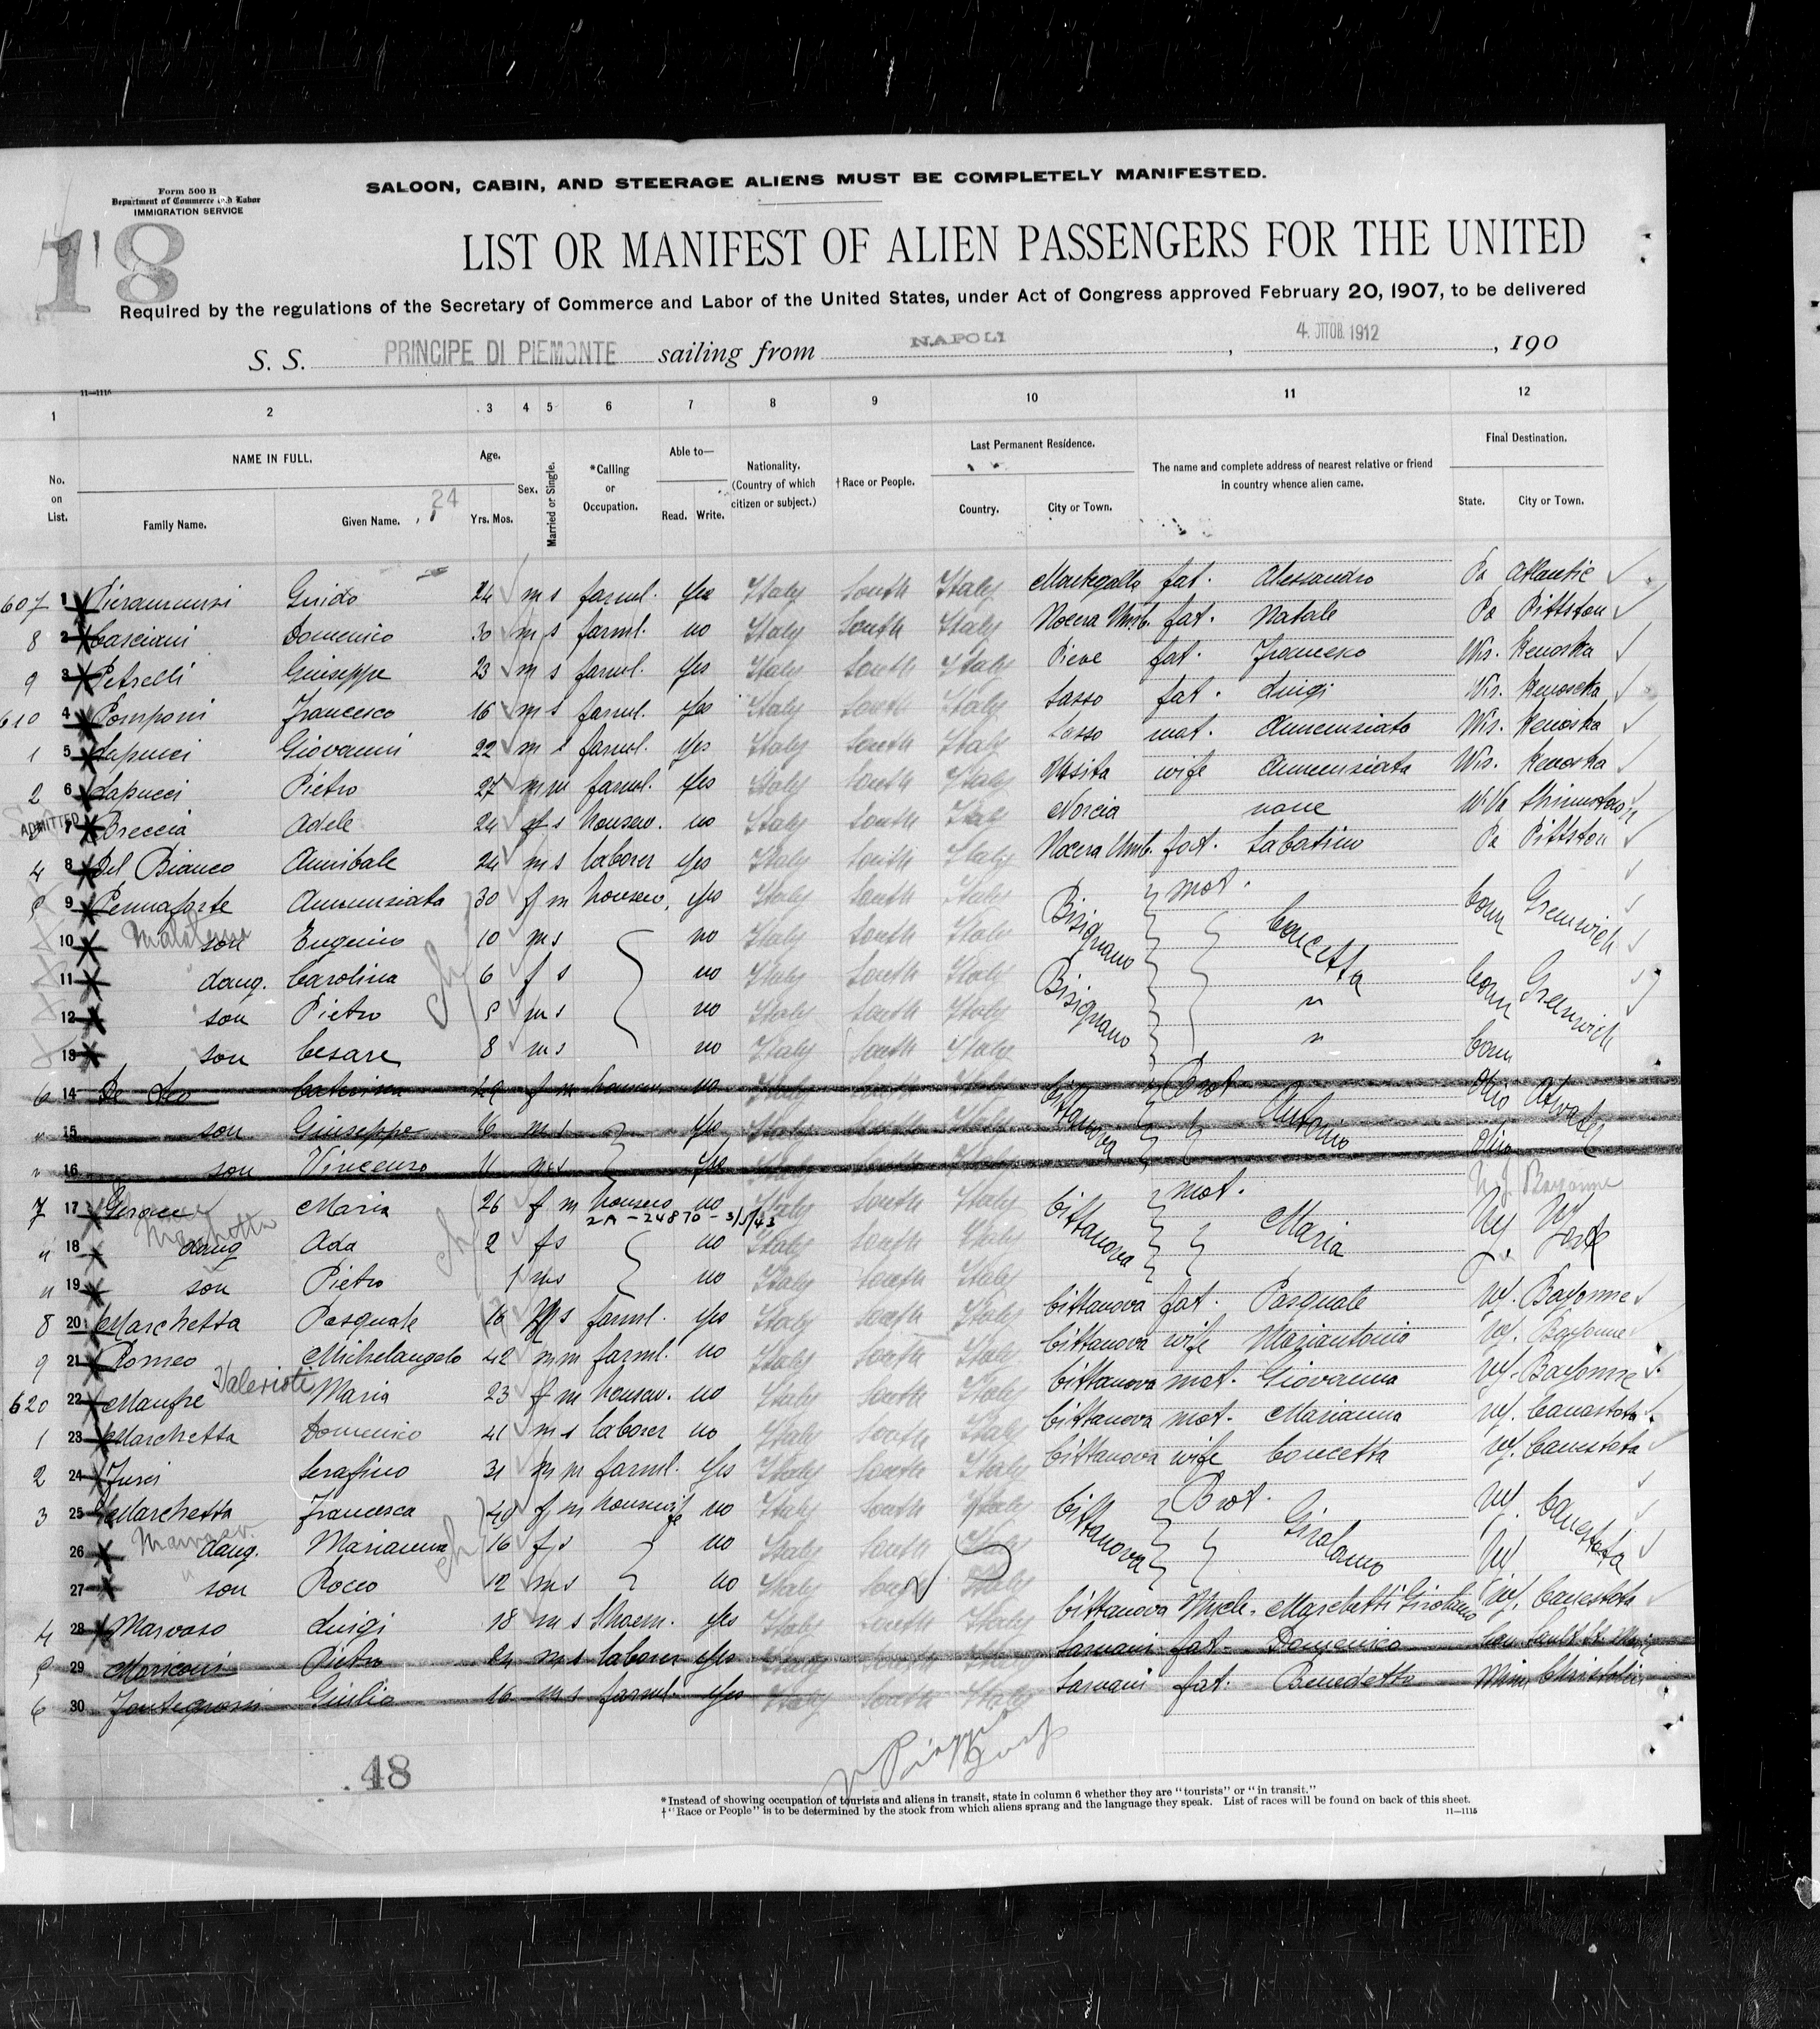 Form 500 B
Department of Commerce and Labor
IMMIGRATION SERVICE
SALOON, CABIN, AND STEERAGE ALIENS MUST BE COMPLETELY MANIFESTED.
18
LIST OR MANIFEST OF ALIEN PASSENGERS FOR THE UNITED
Required by the regulations of the Secretary of Commerce and Labor of the United States, under Act of Congress approved February 20, 1907, to be delivered
S. S. PRINCIPE DI PIEMONTE sailing from NAPOLI , 4. OTTOB. 1912 , 190
11—1115
1 2 3 4 5 6 7 8 9 10 11 12
No. on List.
NAME IN FULL.
Family Name. Given Name. 24
Age.
Yrs. Mos.
Sex.
Married or Single.
*Calling or Occupation.
Able to—
Read. Write.
Nationality. (Country of which citizen or subject.)
†Race or People.
Last Permanent Residence.
Country. City or Town.
The name and complete address of nearest relative or friend in country whence alien came.
Final Destination.
State. City or Town.
607 1 Guido 24 m s farml. Yes Italy South Italy fat. Alessandro Pa Atlantic
8 2 Casciani Domenico 30 m s farml. no Italy South Italy Nocera Umb. fat. Natale Pa Pittston
9 3 Petrelli Giuseppe 23 m s farml. Yes Italy South Italy Pieve fat. Francesco Wis. Kenoska
610 4 Pomponi Francesco 16 m s farml. Yes Italy South Italy Sasso fat. Luigi Wis. Kenoscka
1 5 Lapucci Giovanni 22 m s farml. Yes Italy South Italy Sasso mot. Annunziata Wis. Kenoska
2 6 Lapucci Pietro 27 m m farml. Yes Italy South Italy wife Annunziata Wis. Kenoska
ADMITTED 7 Breccia Adele 24 f s housew. no Italy South Italy Norcia none W. Va
4 8 Del Bianco Annibale 24 m s laborer Yes Italy South Italy Nocera Umb. fat. Sabatino Pa Pittston
5 9 Pennaforte Annunziata 30 f m housew. Yes Italy South Italy Bisignano mot. Concetta Conn Greenwich
10 son Eugenio 10 m s no Italy South Italy
11 daug. Carolina 6 f s no Italy South Italy Bisignano " Conn Greenwich
12 son Pietro 5 m s no Italy South Italy
13 son Cesare 8 m s no Italy South Italy " Conn
6 14 De Leo Caterina 49 f m housew. no Italy South Italy Cittanova Brot Antonio Ohio
" 15 son Giuseppe 16 m s Yes Italy South Italy
" 16 son Vincenzo 11 m s Yes Italy South Italy Ohio
N. J. Bayonne
7 17 Gerace Maria 26 f m housew no Italy South Italy Cittanova mot. Maria NY. N York
2A-24870-3/5/43
" 18 Marchetta daug Ada 2 f s no Italy South Italy
" 19 son Pietro 1 m s no Italy South Italy
8 20 Marchetta Pasquale 16 M s farml. Yes Italy South Italy Cittanova fat. Pasquale NY. Bayonne
9 21 Romeo Michelangelo 42 m m farml. no Italy South Italy Cittanova wife Mariantonia NY. Bayonne
620 22 Manfre Valerioti Maria 23 f m housew. no Italy South Italy Cittanova mot. Giovanna NY. Bayonne
1 23 Marchetta Domenico 41 m s laborer no Italy South Italy Cittanova mot. Marianna NY. Canastota
2 24 Serafino 31 m m farml. Yes Italy South Italy Cittanova wife Concetta NY. Canastota
3 25 Marchetta Francesca 49 f m housewife no Italy South Italy Cittanova Brot. Girolamo NY. Canastota
26 daug. Marianna 16 f s no Italy South Italy NY
27 son Rocco 12 m s no Italy South Italy
4 28 Marvaso Luigi 18 m s Shoem. Yes Italy South Italy Cittanova Uncle. Marchetti Girolamo NY. Canastota
5 29 Mariconi Pietro 24 m s laborer Yes Italy South Italy Sarnani fat. Domenico Sault St. Mary
6 30 Giulio 16 m s farml. Yes Italy South Italy Sarnani fat. Benedetto Minn
48
*Instead of showing occupation of tourists and aliens in transit, state in column 6 whether they are "tourists" or "in transit."
†"Race or People" is to be determined by the stock from which aliens sprang and the language they speak. List of races will be found on back of this sheet.
11—1115